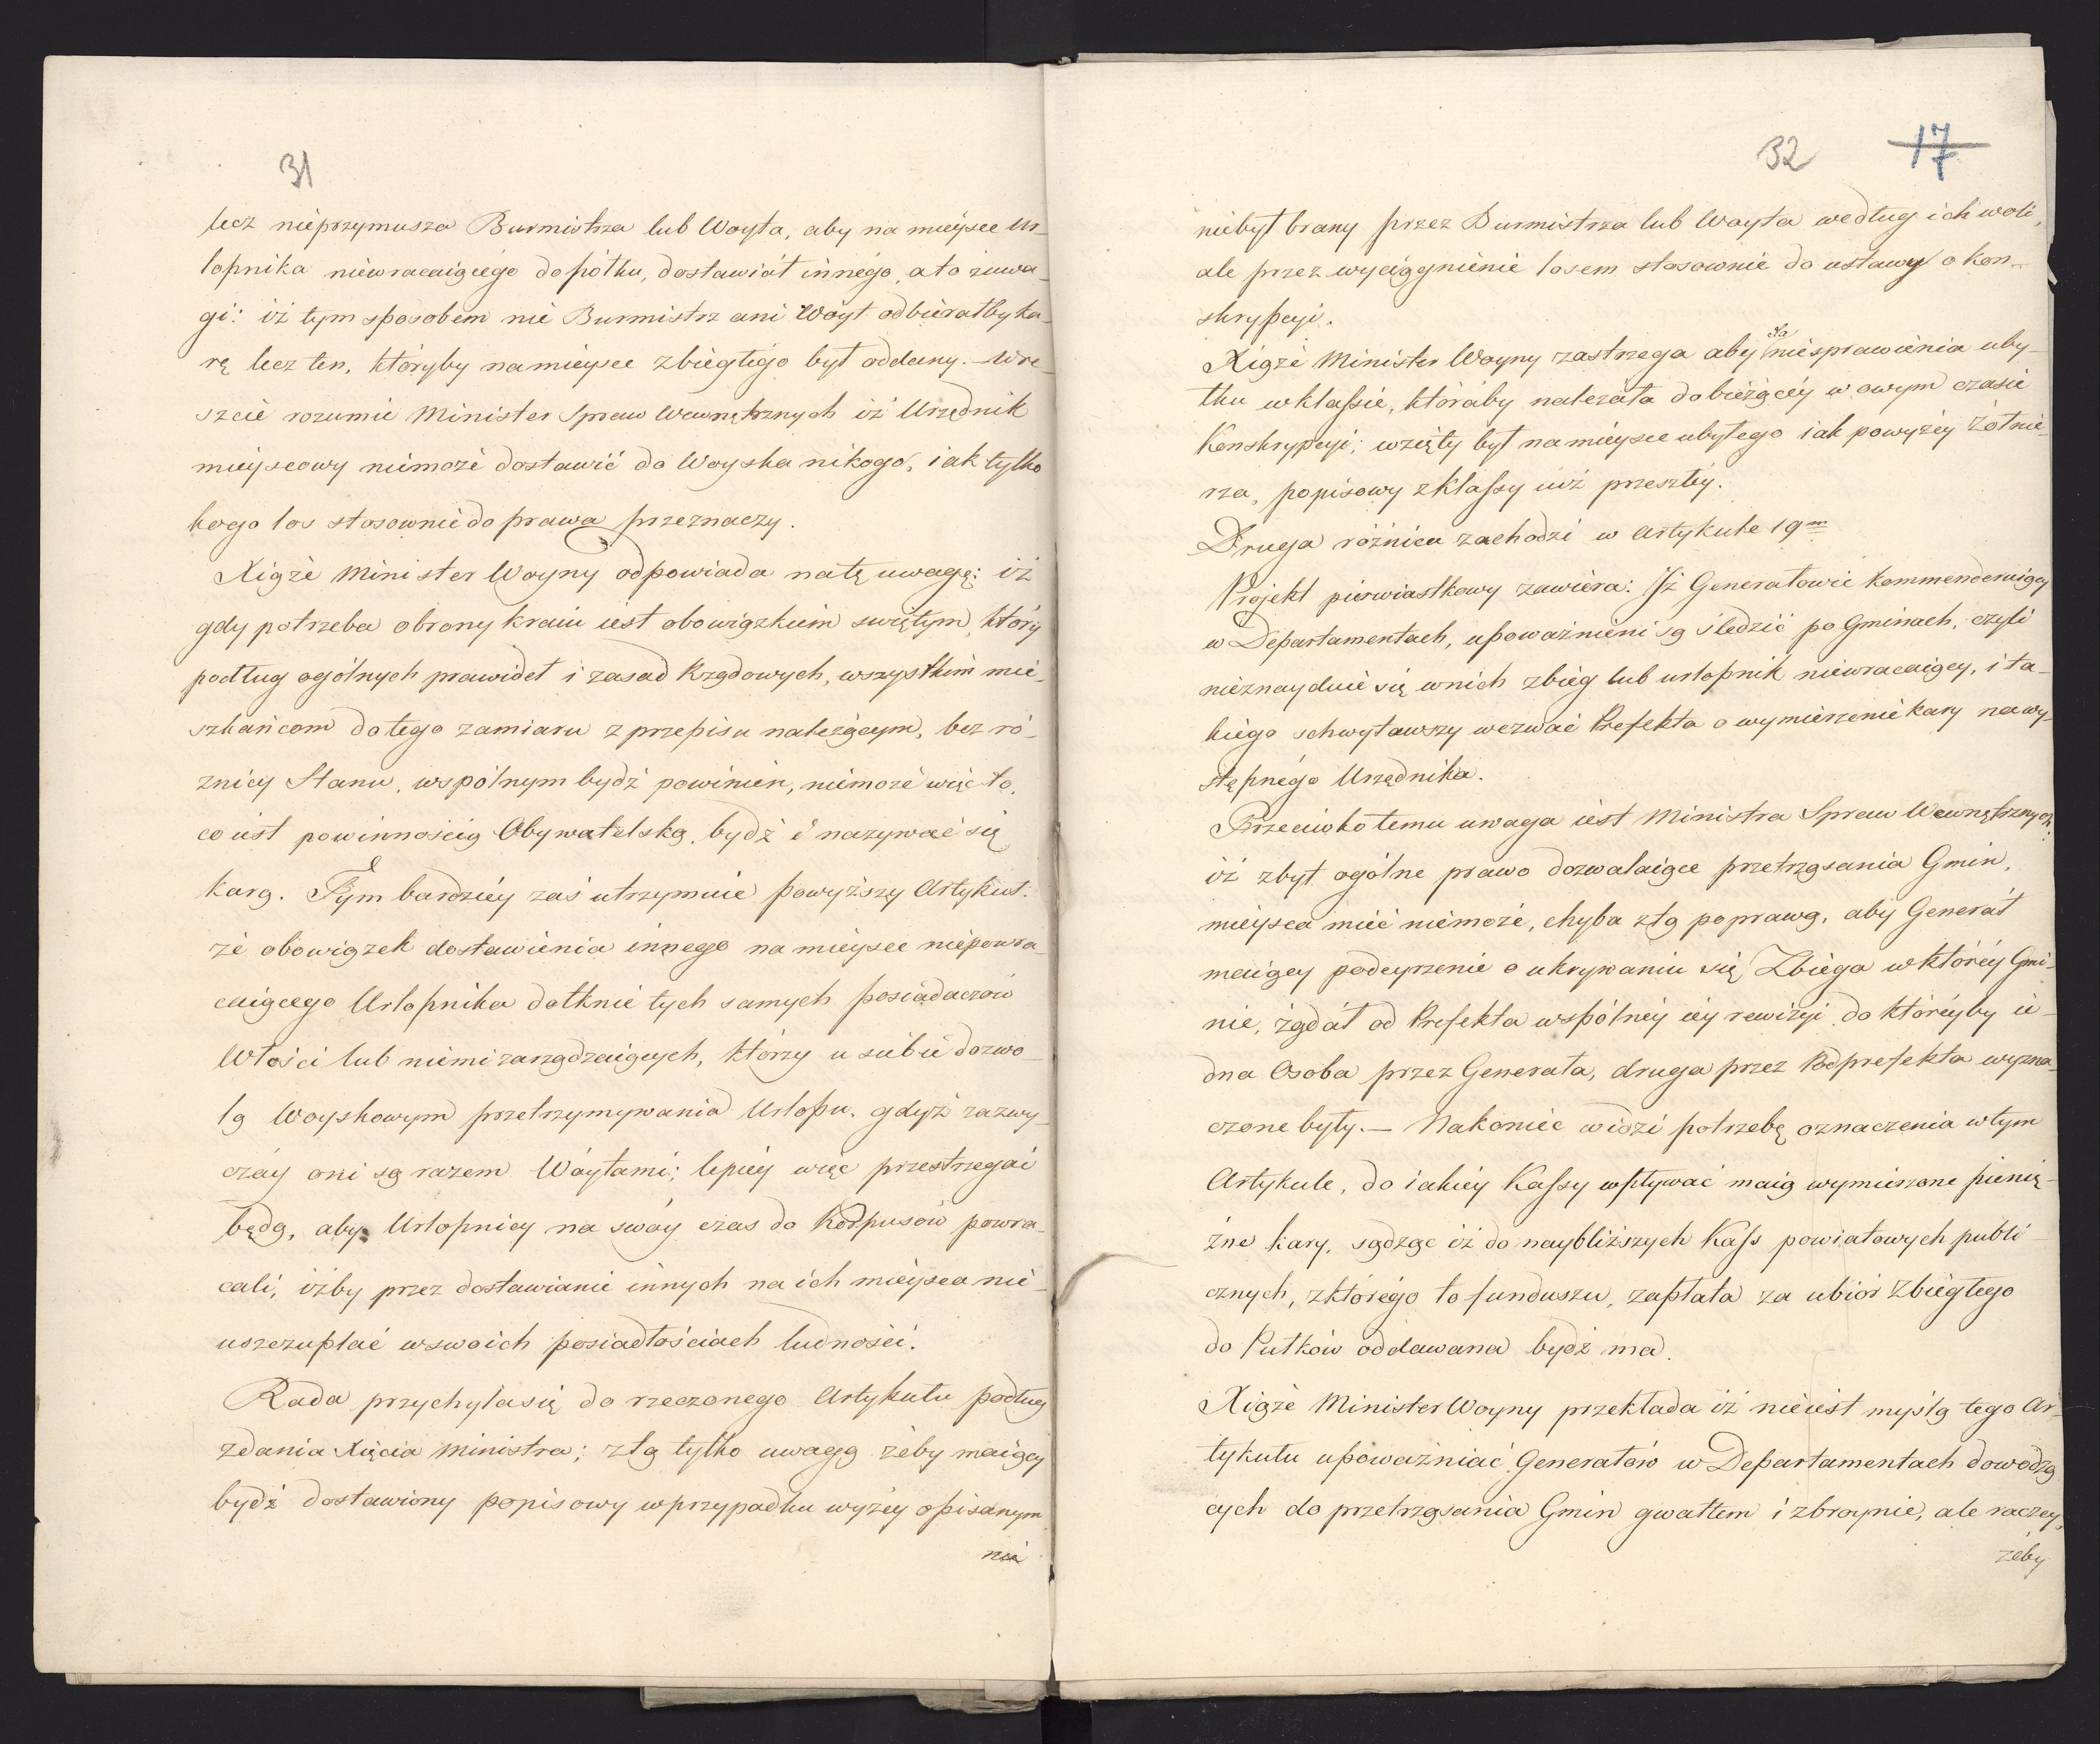 31
lecz nieprzymusza Burmistrza lub Woyta, aby na mieysce Ur-
lopnika niewracaiącego do półku, dostawiał innego, a to z uwa-
gi: iż tym sposobem nie Burmistrz ani Woyt odbierałby ka-
rę lecz ten, któryby na mieysce zbiegłego był oddany. — Wre-
szcie rozumie Minister Spraw Wewnętrznych iż Urzędnik
mieyscowy niemoże dostawić do Woyska nikogo, iak tylko
kogo los stosownie do prawa przeznaczy.
Xiąże Minister Woyny odpowiada na tę uwagę: iż
gdy potrzeba obrony kraiu iest obowiązkiem swiętym, który
podług ogólnych prawideł i zasad Rządowych, wszystkim mie-
szkańcom do tego zamiaru z przepisu należącym, bez ró-
żnicy Stanu, wspólnym bydź powinien, niemoże więc to,
co iest powinnością Obywatelską, bydź i nazywać się
karą. Tym bardziéy zaś utrzymuie powyższy Artykuł:
że obowiązek dostawienia innego na mieysce niepowra-
caiącego Urlopnika dotknie tych samych posiadaczów
Włości lub niemi zarządzaiących, którzy u siebie dozwo-
lą Woyskowym przetrzymywania Urlopu, gdyż zazwy-
czay oni są razem Woytami; lepiéy więc przestrzegać
będą, aby Urlopnicy na swóy czas do Korpusów powra-
cali, iżby przez dostawianie innych na ich mieysca nie
uszczuplać w swoich posiadłościach ludności.
Rada przychyla się do rzeczonego Artykułu podług
zdania Xięcia Ministra; z tą tylko uwagą żeby maiący
bydź dostawiony popisowy w przypadku wyżéy opisanym
nie
32 17
niebył brany przez Burmistrza lub Woyta według ich woli,
ale przez wyciągnienie losem stosownie do ustawy o kon-
skrypcyi.
Xiąże Minister Woyny zastrzega aby dla niesprawienia uby-
tku w klassie, któraby należała do bieżącéy w owym czasie
Konskrypcyi; wzięty był na mieysce ubytego iak powyżéy Żołnie-
rza, popisowy z klassy iuż przeszłéy.
Druga różnica zachodzi w Artykule 19m
Projekt pierwiastkowy zawiera: Iż Generałowie kommenderuiący
w Departamentach, upoważnieni są śledzić po Gminach, czyli
nieznayduie się w nich zbieg lub urlopnik niewracaiący, i ta-
kiego schwytawszy wezwać Prefekta o wymierzenie kary na wy-
stępnego Urzędnika.
Przeciwko temu uwaga iest Ministra Spraw Wewnętrznych:
iż zbyt ogólne prawo dozwalaiące przetrząsania Gmin,
mieysca mieć niemoże, chyba z tą poprawą, aby Generał
maiący podeyrzenie o ukrywaniu się Zbiega w któréy Gmi-
nie, żądał od Prefekta wspólnéy iéy rewizyi do któréyby ie-
dna Osoba przez Generała, druga przez Podprefekta wyzna-
czone były. — Nakoniec widzi potrzebę oznaczenia w tym
Artykule, do iakiéy Kassy wpływać maią wymierzone pienię-
żne kary, sądząc iż do naybliższych Kass powiatowych publi-
cznych, z którego to funduszu, zapłata za ubiór Zbiegłego
do Pułków oddawana bydź ma.
Xiąże Minister Woyny przekłada iż nieiest myślą tego Ar-
tykułu upoważniać Generałów w Departamentach dowodzą-
cych do przetrząsania Gmin gwałtem i zbroynie, ale raczey,
żeby